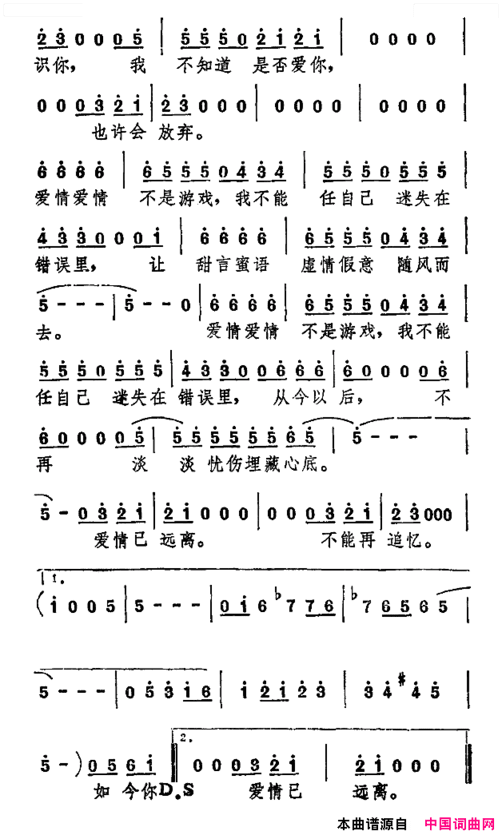 2 3 0 0 0 5 | 5 5 5 0 2 1 2 1 | 0 0 0 0 |
识你， 我 不知道 是否爱你，
0 0 0 3 2 1 | 2 3 0 0 0 | 0 0 0 0 | 0 0 0 0 |
也许会 放弃。
6 6 6 6 | 6 5 5 5 0 4 3 4 | 5 5 5 0 5 5 5 |
爱情爱情 不是游戏，我不能 任自己 迷失在
4 3 3 0 0 0 1 | 6 6 6 6 | 6 5 5 5 0 4 3 4 |
错误里， 让 甜言蜜语 虚情假意 随风而
5 - - - | 5 - - 0 | 6 6 6 6 | 6 5 5 5 0 4 3 4 |
去。 爱情爱情 不是游戏，我不能
5 5 5 0 5 5 5 | 4 3 3 0 0 6 6 6 | 6 0 0 0 0 6 |
任自己 迷失在 错误里， 从今以 后， 不
6 0 0 0 0 5 | 5 5 5 5 5 5 6 5 | 5 - - - |
再 淡 淡 忧伤埋藏心底。
5 - 0 3 2 1 | 2 1 0 0 0 | 0 0 0 3 2 1 | 2 3 0 0 0 |
爱情已 远离。 不能再 追忆。
1.
( 1 0 0 5 | 5 - - - | 0 1 6 ♭7 7 6 | ♭7 6 5 6 5 |
5 - - - | 0 5 3 1 6 | 1 2 1 2 3 | 3 4 #4 5 |
2.
5 - ) 0 5 6 1 | 0 0 0 3 2 1 | 2 1 0 0 0 |
如 今你D.S 爱情已 远离。
本曲谱源自 中国词曲网